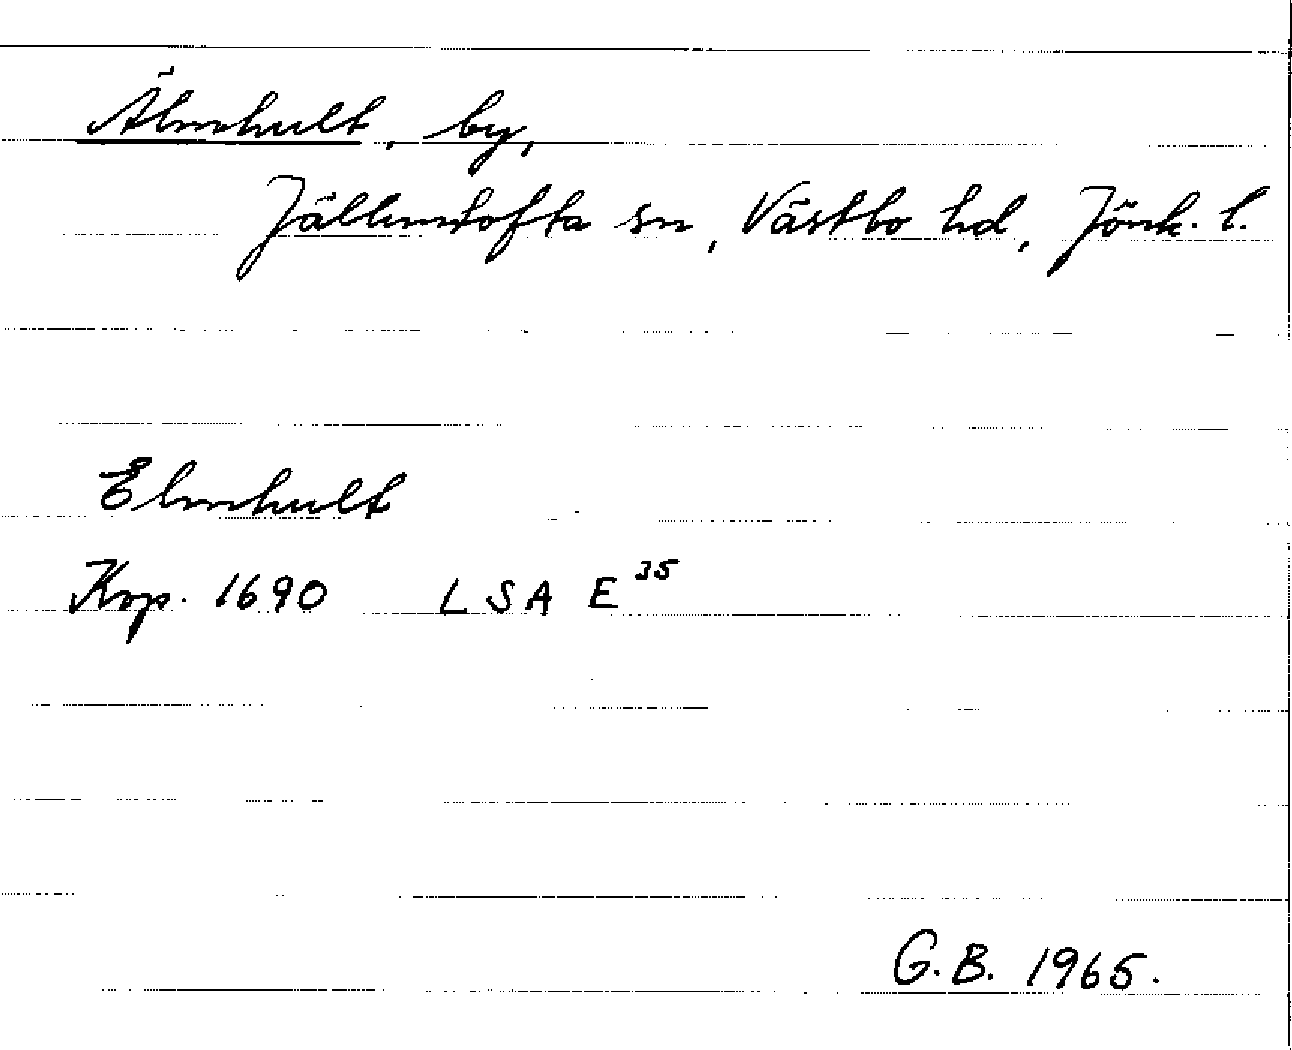 Älmhult, by,
Jällundtofta sn, Västbo hd, Jönk. l.
Elmhult
Krp. 1690 LSA E 35
G.B. 1965.